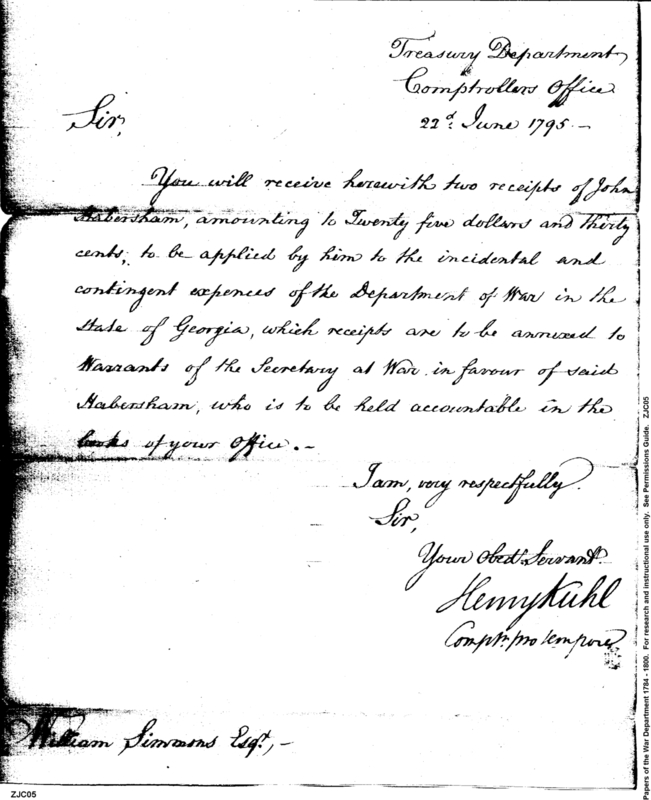 Treasury Department
Comptrollers Office
22d. June 1795.—
Sir,
You will receive herewith two receipts of John
Habersham, amounting to Twenty five dollars and thirty
cents; to be applied by him to the incidental and
contingent expences of the Department of War in the
State of Georgia, which receipts are to be annexed to
Warrants of the Secretary at War in favour of said
Habersham, who is to be held accountable in the
books of your Office.—
I am, very respectfully.
Sir,
Your Obedt. Servant.
Henry Kuhl
Comptr. pro tempore
William Simmons Esqr.,—
ZJC05
Papers of the War Department 1784 - 1800. For research and instructional use only. See Permissions Guide. ZJC05